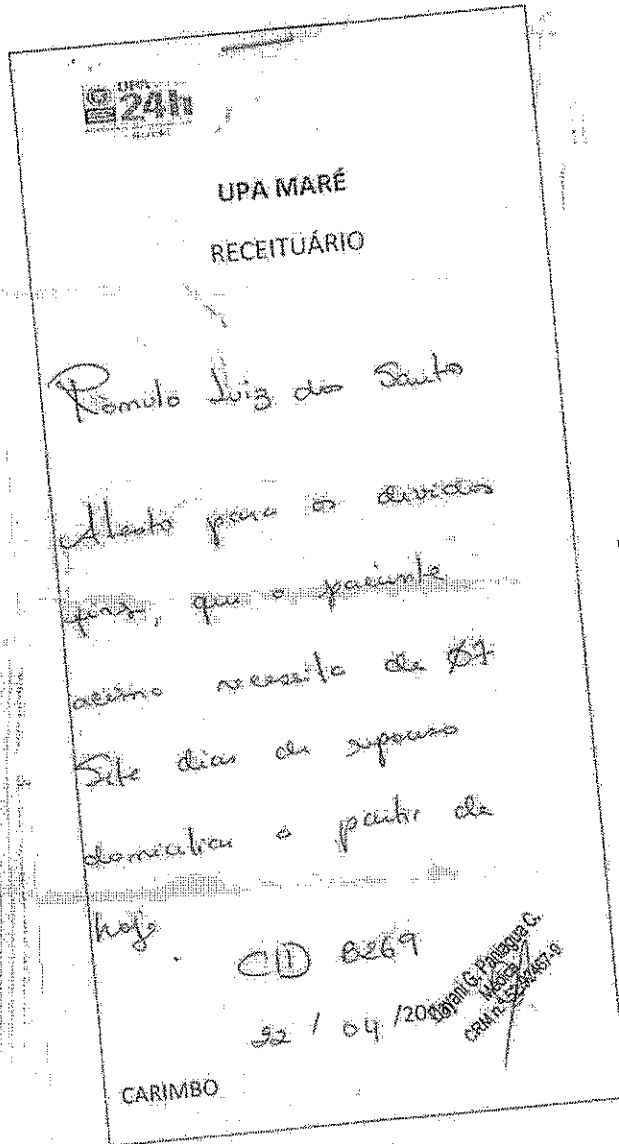 UPA
24h
UPA MARÉ
RECEITUÁRIO
Romulo Luiz do Santo
Atesto para os devidos
fins, que o paciente
acima necessita de 07
Sete dias de repouso
domiciliar a partir de
hoje.
CID B269
22 / 04 /20
Dayani G. Paniagua C.
Médica
CARIMBO